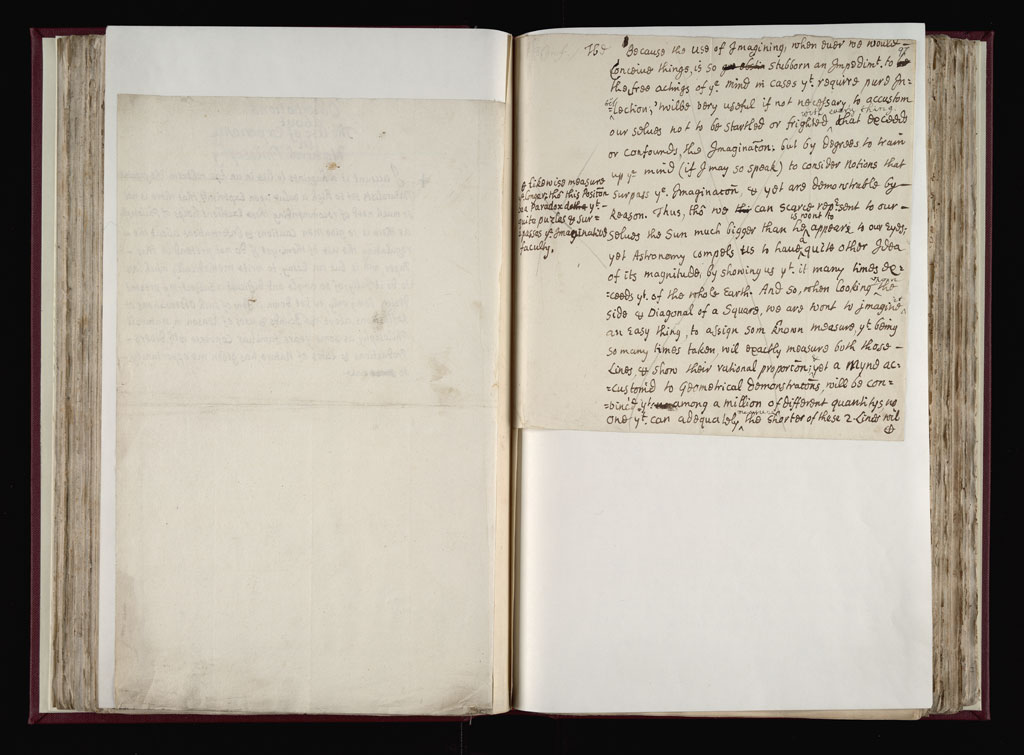 Because the use of Imagining, when ever we would
conceive things, is so stubborn an Impedimt. to ye
the free actings of ye. mind in cases yt. require pure In-
=tellection; 'twilbe very useful if not necessary, to accustom
our selves not to be startled or frighted with every thing that exceeds
or confounds, the Imaginaton; but by degrees to train
up ye. mind (if I may so speak) to consider Notions that
surpass ye. Imaginaton & yet are demonstrable by
Reason. Thus, tho we can scarce represent to our
selves the Sun much bigger than he is wont to appeare to our eyes;
yet Astronomy compels us to have a quite other Idea
of its magnitude, by showing us yt. it many times ex-
=ceeds yt. of the whole Earth. And so, when looking upon the
side & Diagonal of a Square, we are wont to imagine it
an Easy thing, to assign som known measure, yt. being
so many times taken, wil exactly measure both those
Lines, & show their rational proporton; yet a Mynd ac-
=custom'd to Geometrical demonstratons, will be con-
=vinc'd yt. among a million of different quantitys no
one yt. can adequately measure the shorter of these 2 Lines wil
likewise measure
ye longer; tho this Positon
be a Paradox yt.
quite puzles & sur-
passes ye. Imaginative
faculty.